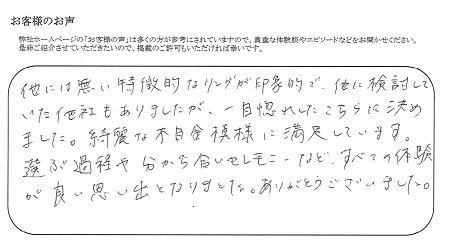 お客様のお声
弊社ホームページの「お客様の声」は多くの方が参考にされていますので、貴重な体験談やエピソードなどをお聞かせください。
是非ご紹介させていただきたいので、掲載のご許可もいただければ幸いです。
他には無い特徴的なリングが印象的で、他に検討して
いた他社もありましたが、一目惚れしたこちらに決め
ました。綺麗な木目金模様に満足しています。
選ぶ過程や分かち合いセレモニーなど、すべての体験
が良い思い出となりました。ありがとうございました。